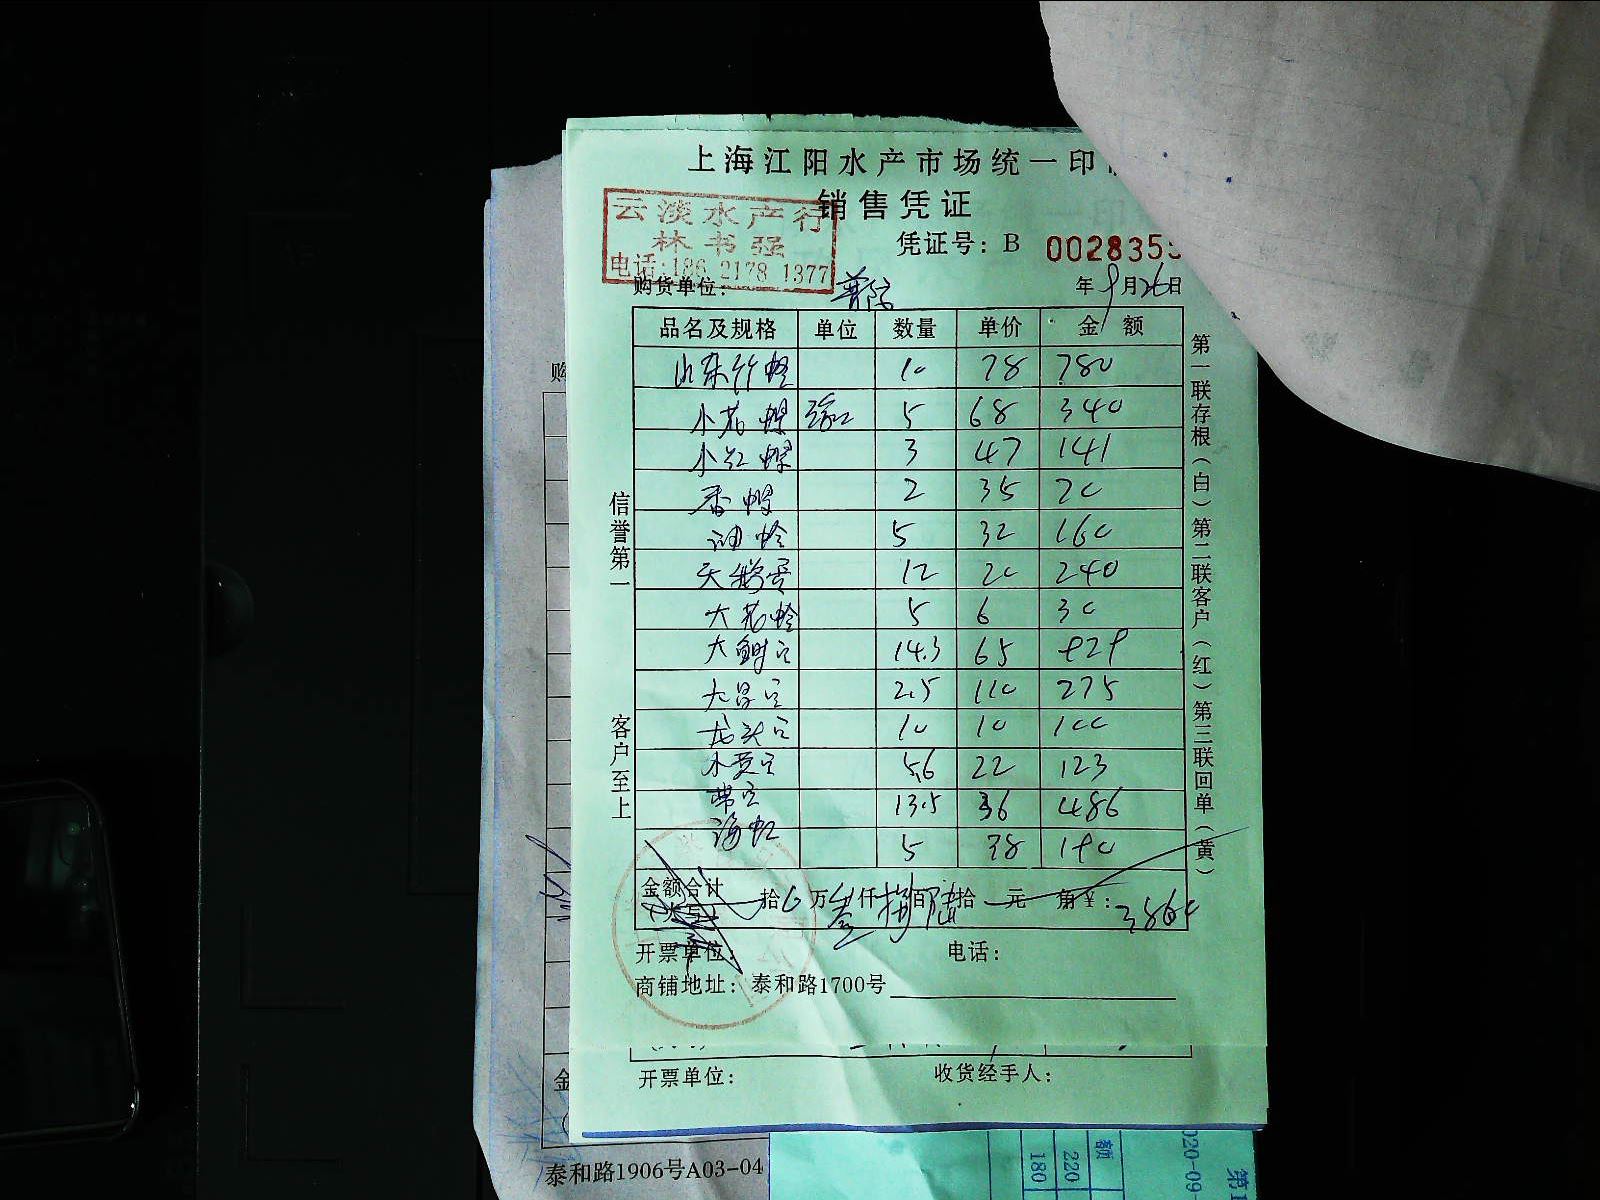 上海江阳水产市场统一印
销售凭证
云淡水产行
林书强
电话:186 2178 1377
凭证号：B 0028355
购货单位：
年9月26日
品名及规格 单位 数量 单价 金额
山东竹蛏 10 78 780
小花螺 5 68 340
小红螺 3 47 141
香螺 2 35 70
油蛤 5 32 160
天鹅蛋 12 20 240
大花蛤 5 6 30
大鲥鱼 14.3 65 929
大昌鱼 2.5 110 275
龙头鱼 10 10 100
小黄鱼 5.6 22 123
带鱼 13.5 36 486
海虹 5 38 190
金额合计
（大写） 拾 万叁仟捌佰陆拾 元 角 ￥：3860
开票单位： 电话：
商铺地址：泰和路1700号
信誉第一
客户至上
第一联存根（白）第二联客户（红）第三联回单（黄）
开票单位： 收货经手人：
购
金
泰和路1906号A03-04
额
220
180
020-09
第